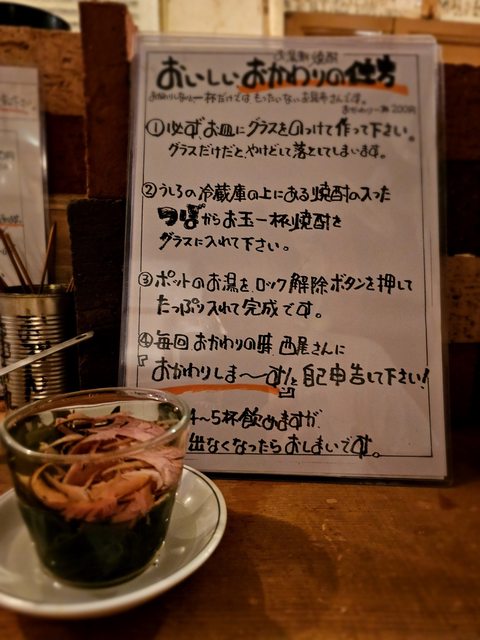 お昆布焼酎
おいしいおかわりの仕方
おかわりしないで一杯だけでは もったいないお昆布さんです。
おかわり一杯 200円
①必ず、お皿にグラスをのっけて作って下さい。
グラスだけだと、やけどして落としてしまいます。
②うしろの冷蔵庫の上にある焼酎の入った
つぼからお玉一杯焼酎を
グラスに入れて下さい。
③ポットのお湯を、ロック解除ボタンを押して
たっぷり入れて完成です。
④毎回おかわりの時、酉屋さんに
『おかわりしま〜す!』と自己申告して下さい!
4〜5杯飲めますが、
出なくなったらおしまいです。